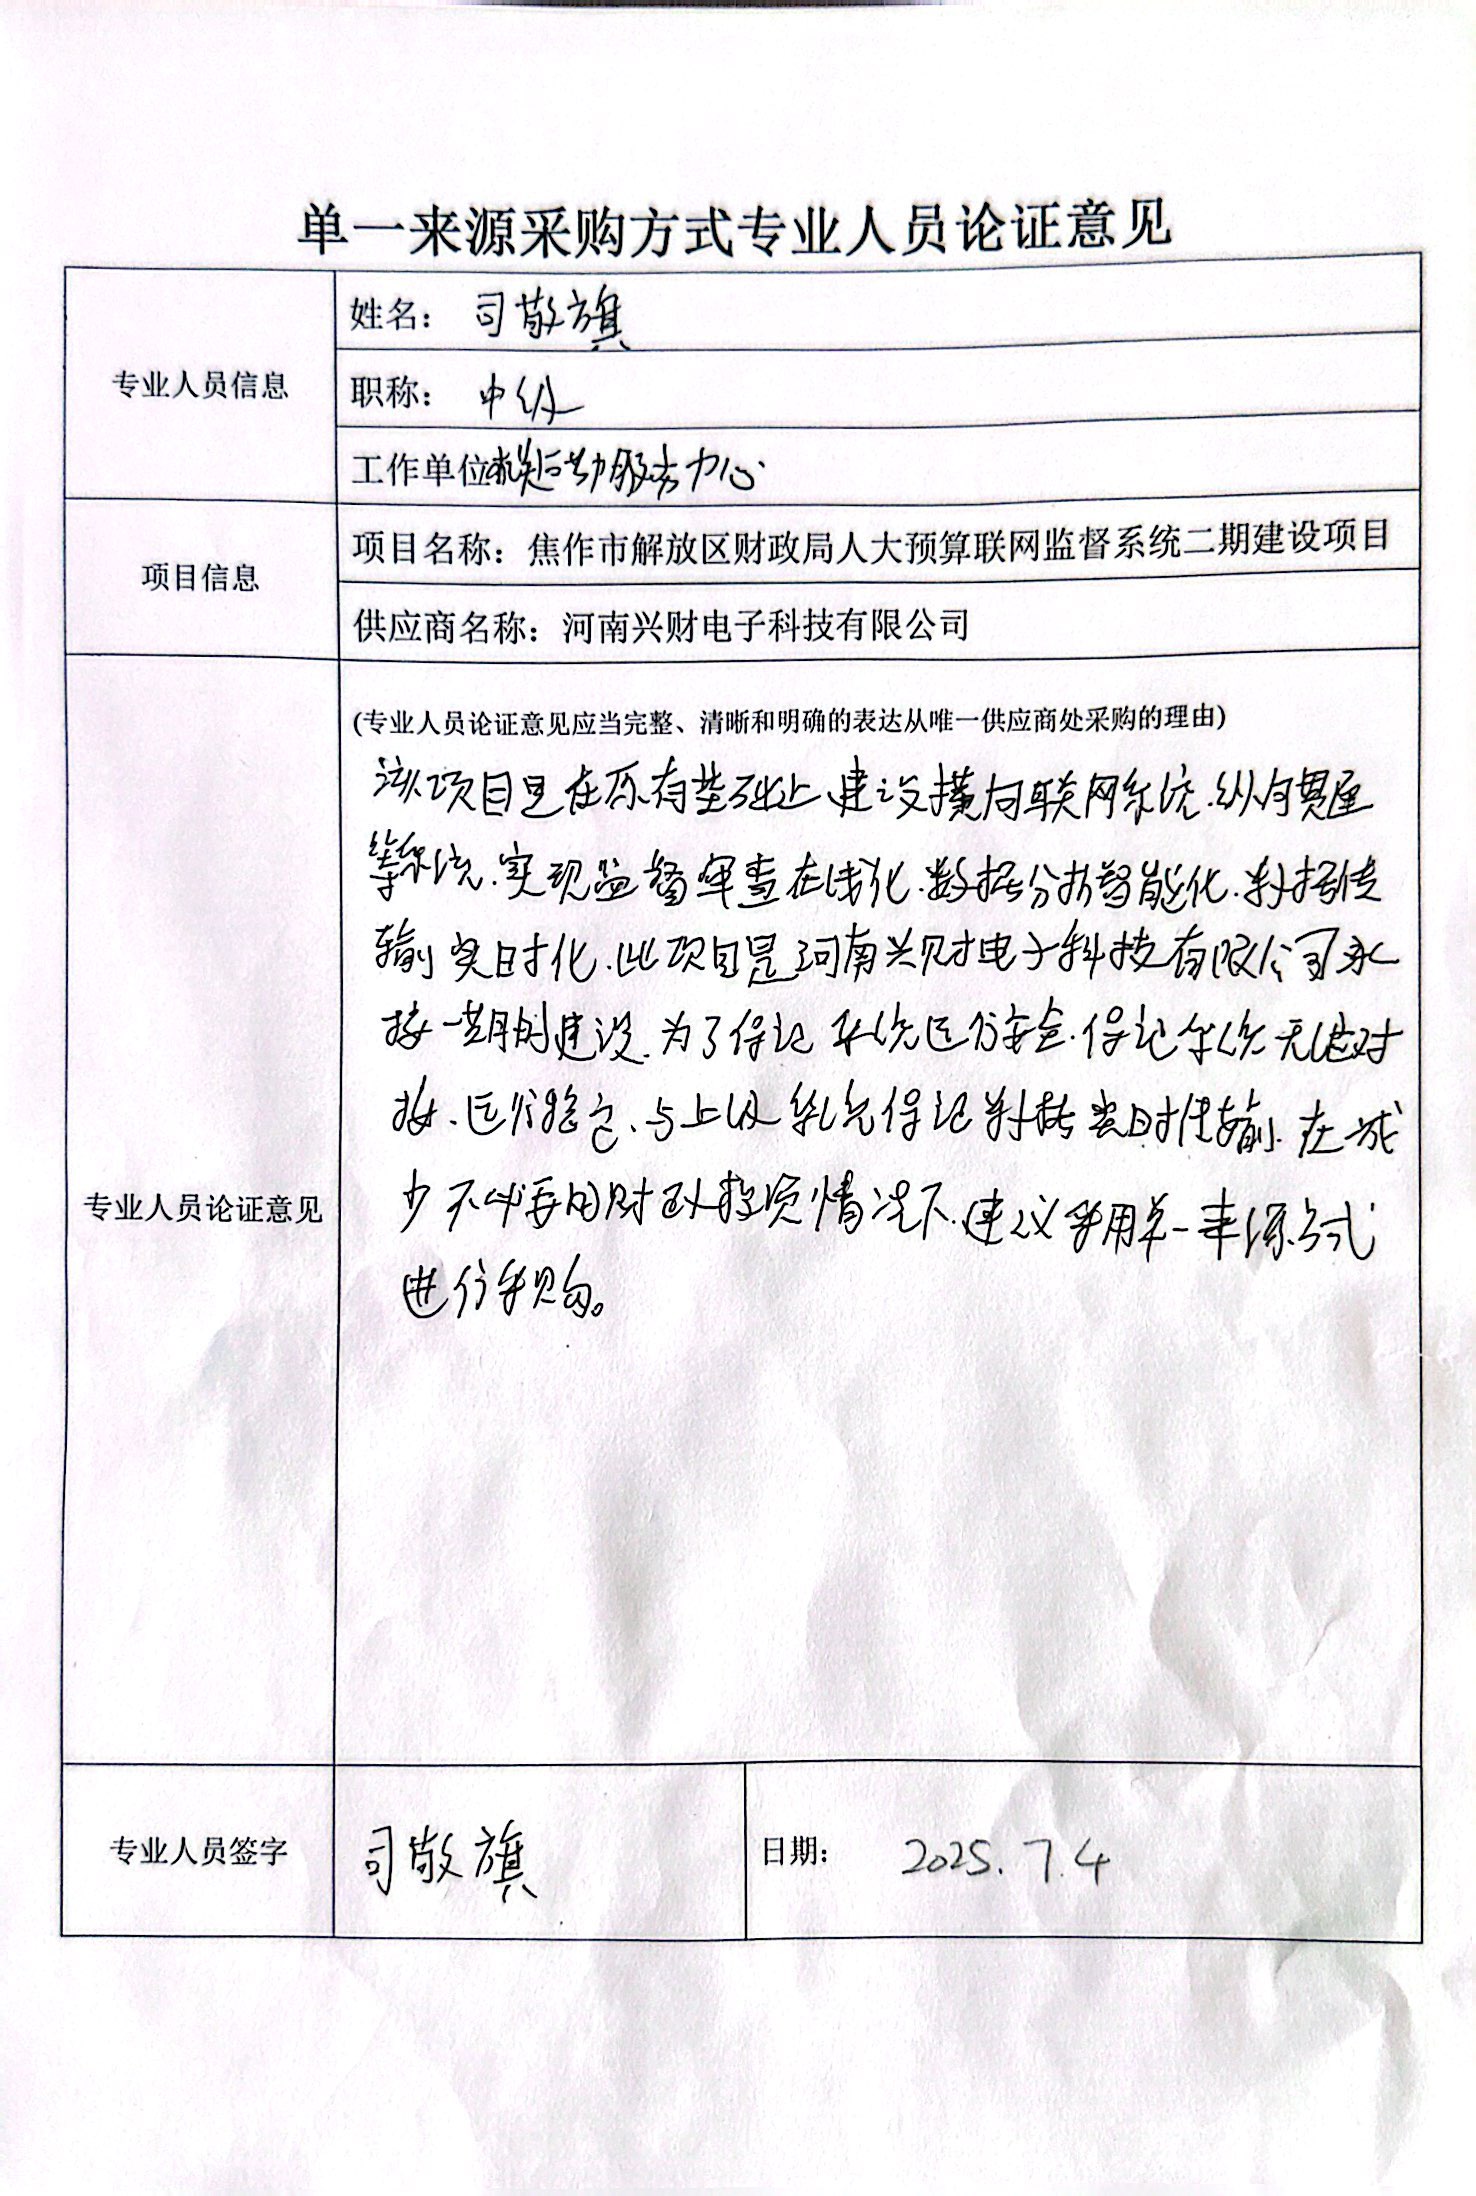 单一来源采购方式专业人员论证意见
专业人员信息
姓名： 司敬旗
职称： 中级
工作单位 后勤服务中心
项目信息
项目名称：焦作市解放区财政局人大预算联网监督系统二期建设项目
供应商名称：河南兴财电子科技有限公司
专业人员论证意见
(专业人员论证意见应当完整、清晰和明确的表达从唯一供应商处采购的理由)
该项目是在原有基础上、建设横向联网系统、纵向贯通
等系统、实现监督审查在线化、数据分析智能化、数据传
输实时化、此项目是河南兴财电子科技有限公司承
接一期的建设、为了保证系统运行安全、保证系统无缝对
接、运行稳定、与上级系统保证数据实时传输、在减
少不必要的财政投资情况下、建议采用单一来源方式
进行采购。
专业人员签字
司敬旗
日期： 2025.7.4